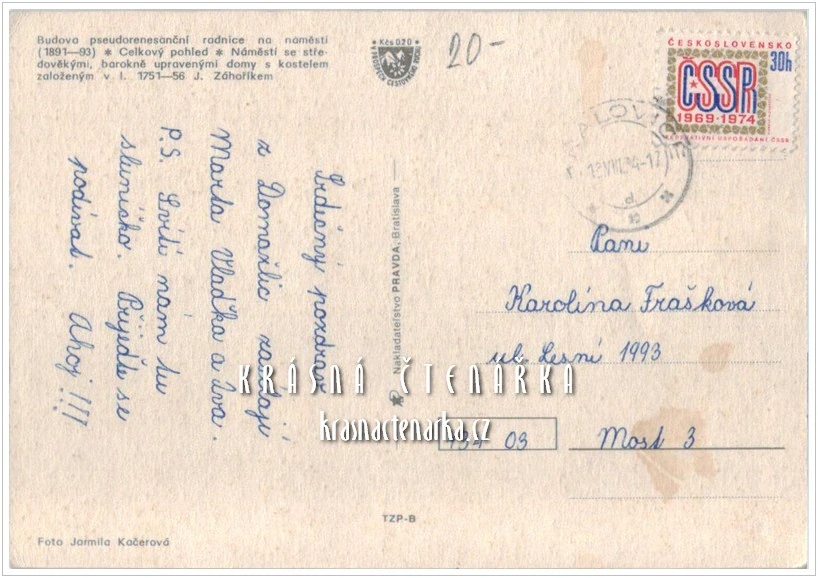 Budova pseudorenesanční radnice na náměstí
(1891—93) * Celkový pohled * Náměstí se stře-
dověkými, barokně upravenými domy s kostelem
založeným v l. 1751—56 J. Záhoříkem
Kčs 0,20
20-
ČESKOSLOVENSKO
30h
ČSSR
1969-1974
FEDERATIVNÍ USPOŘÁDÁNÍ ČSSR
Srdečný pozdrav
z Domažlic zasílají
Marta Vlaďka a Iva.
P.S. Svítí nám tu
sluníčko. Přijeďte se
podívat. Ahoj!!!
Nakladatelství PRAVDA, Bratislava
Paní
Karolína Frašková
ul. Lesní 1993
434 03 Most 3
KRÁSNÁ ČTENÁŘKA
krasnactenarka.cz
TZP-B
Foto Jarmila Kačerová